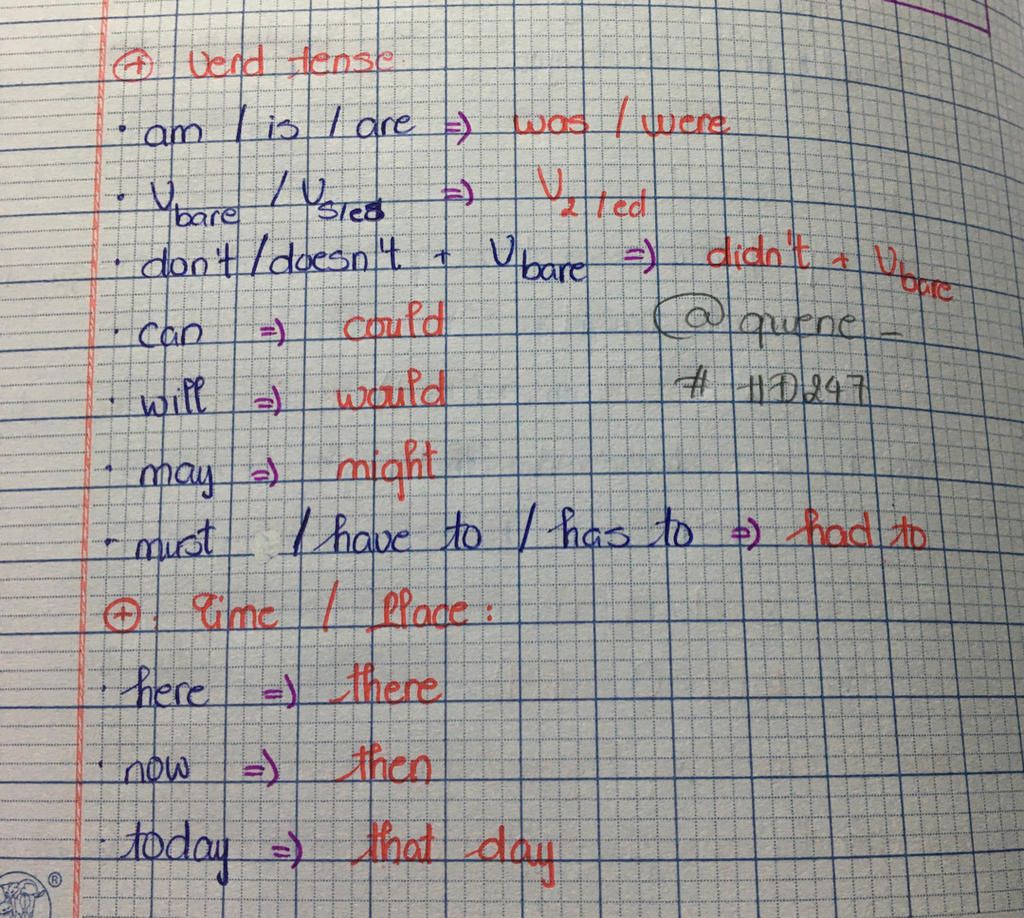 ⊕ Verd tense.
· am / is / are => was / were
· Vbare / Vs/es => V2/ed
· don't / doesn't + Vbare => didn't + Vbare
· can => could
@ quene _
· will => would
# HD247
· may => might
· must / have to / has to => had to
⊕. Time / Place :
· here => there
· now => then
· today => that day
®